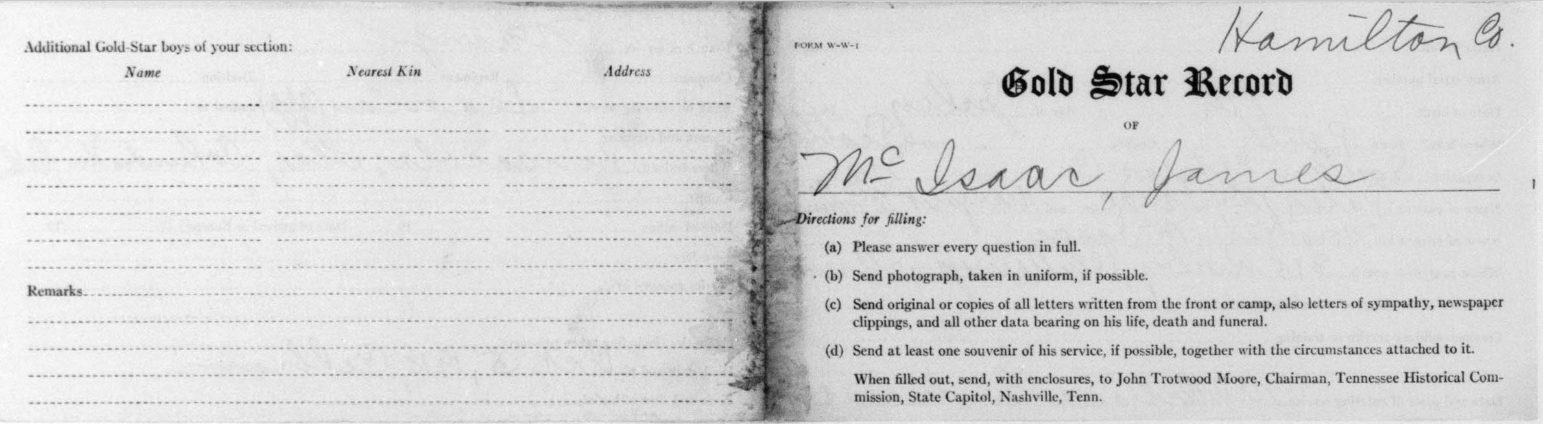 Additional Gold-Star boys of your section:
Name Nearest Kin Address
Remarks
FORM W-W-1
Hamilton Co.
Gold Star Record
OF
Mc Isaac, James
Directions for filling:
(a) Please answer every question in full.
(b) Send photograph, taken in uniform, if possible.
(c) Send original or copies of all letters written from the front or camp, also letters of sympathy, newspaper
clippings, and all other data bearing on his life, death and funeral.
(d) Send at least one souvenir of his service, if possible, together with the circumstances attached to it.
When filled out, send, with enclosures, to John Trotwood Moore, Chairman, Tennessee Historical Com-
mission, State Capitol, Nashville, Tenn.